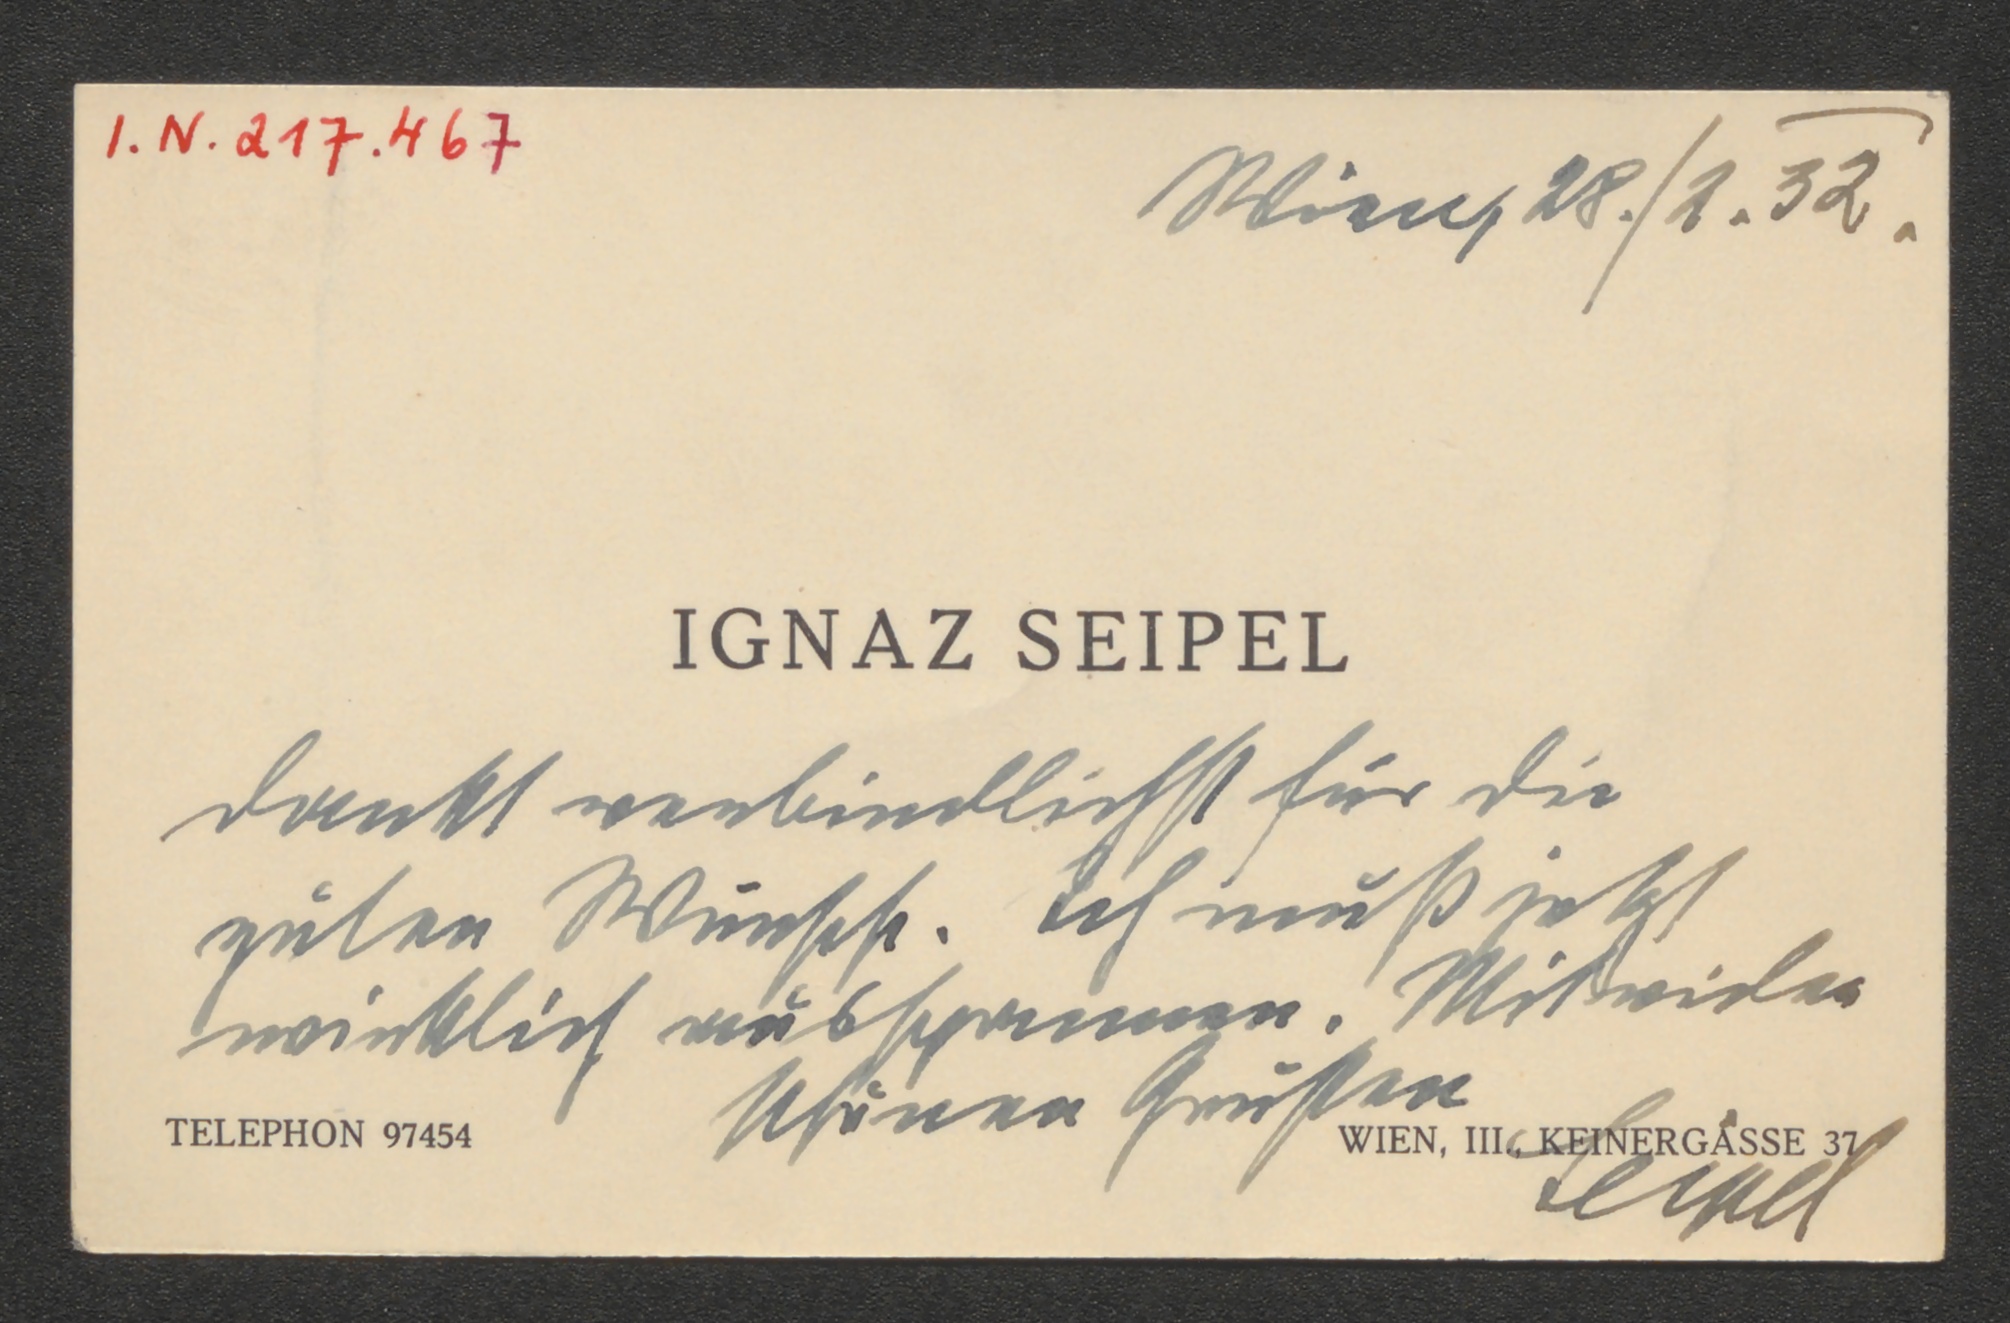 I. N. 217.467
Wien, 28./1. 32.
IGNAZ SEIPEL
dankt verbindlichst für die
guten Wünsche. Ich muß jetzt
wirklich ausspannen. Mit vielen
schönen Grüßen
TELEPHON 97454
WIEN, III., KEINERGASSE 37
Seipel